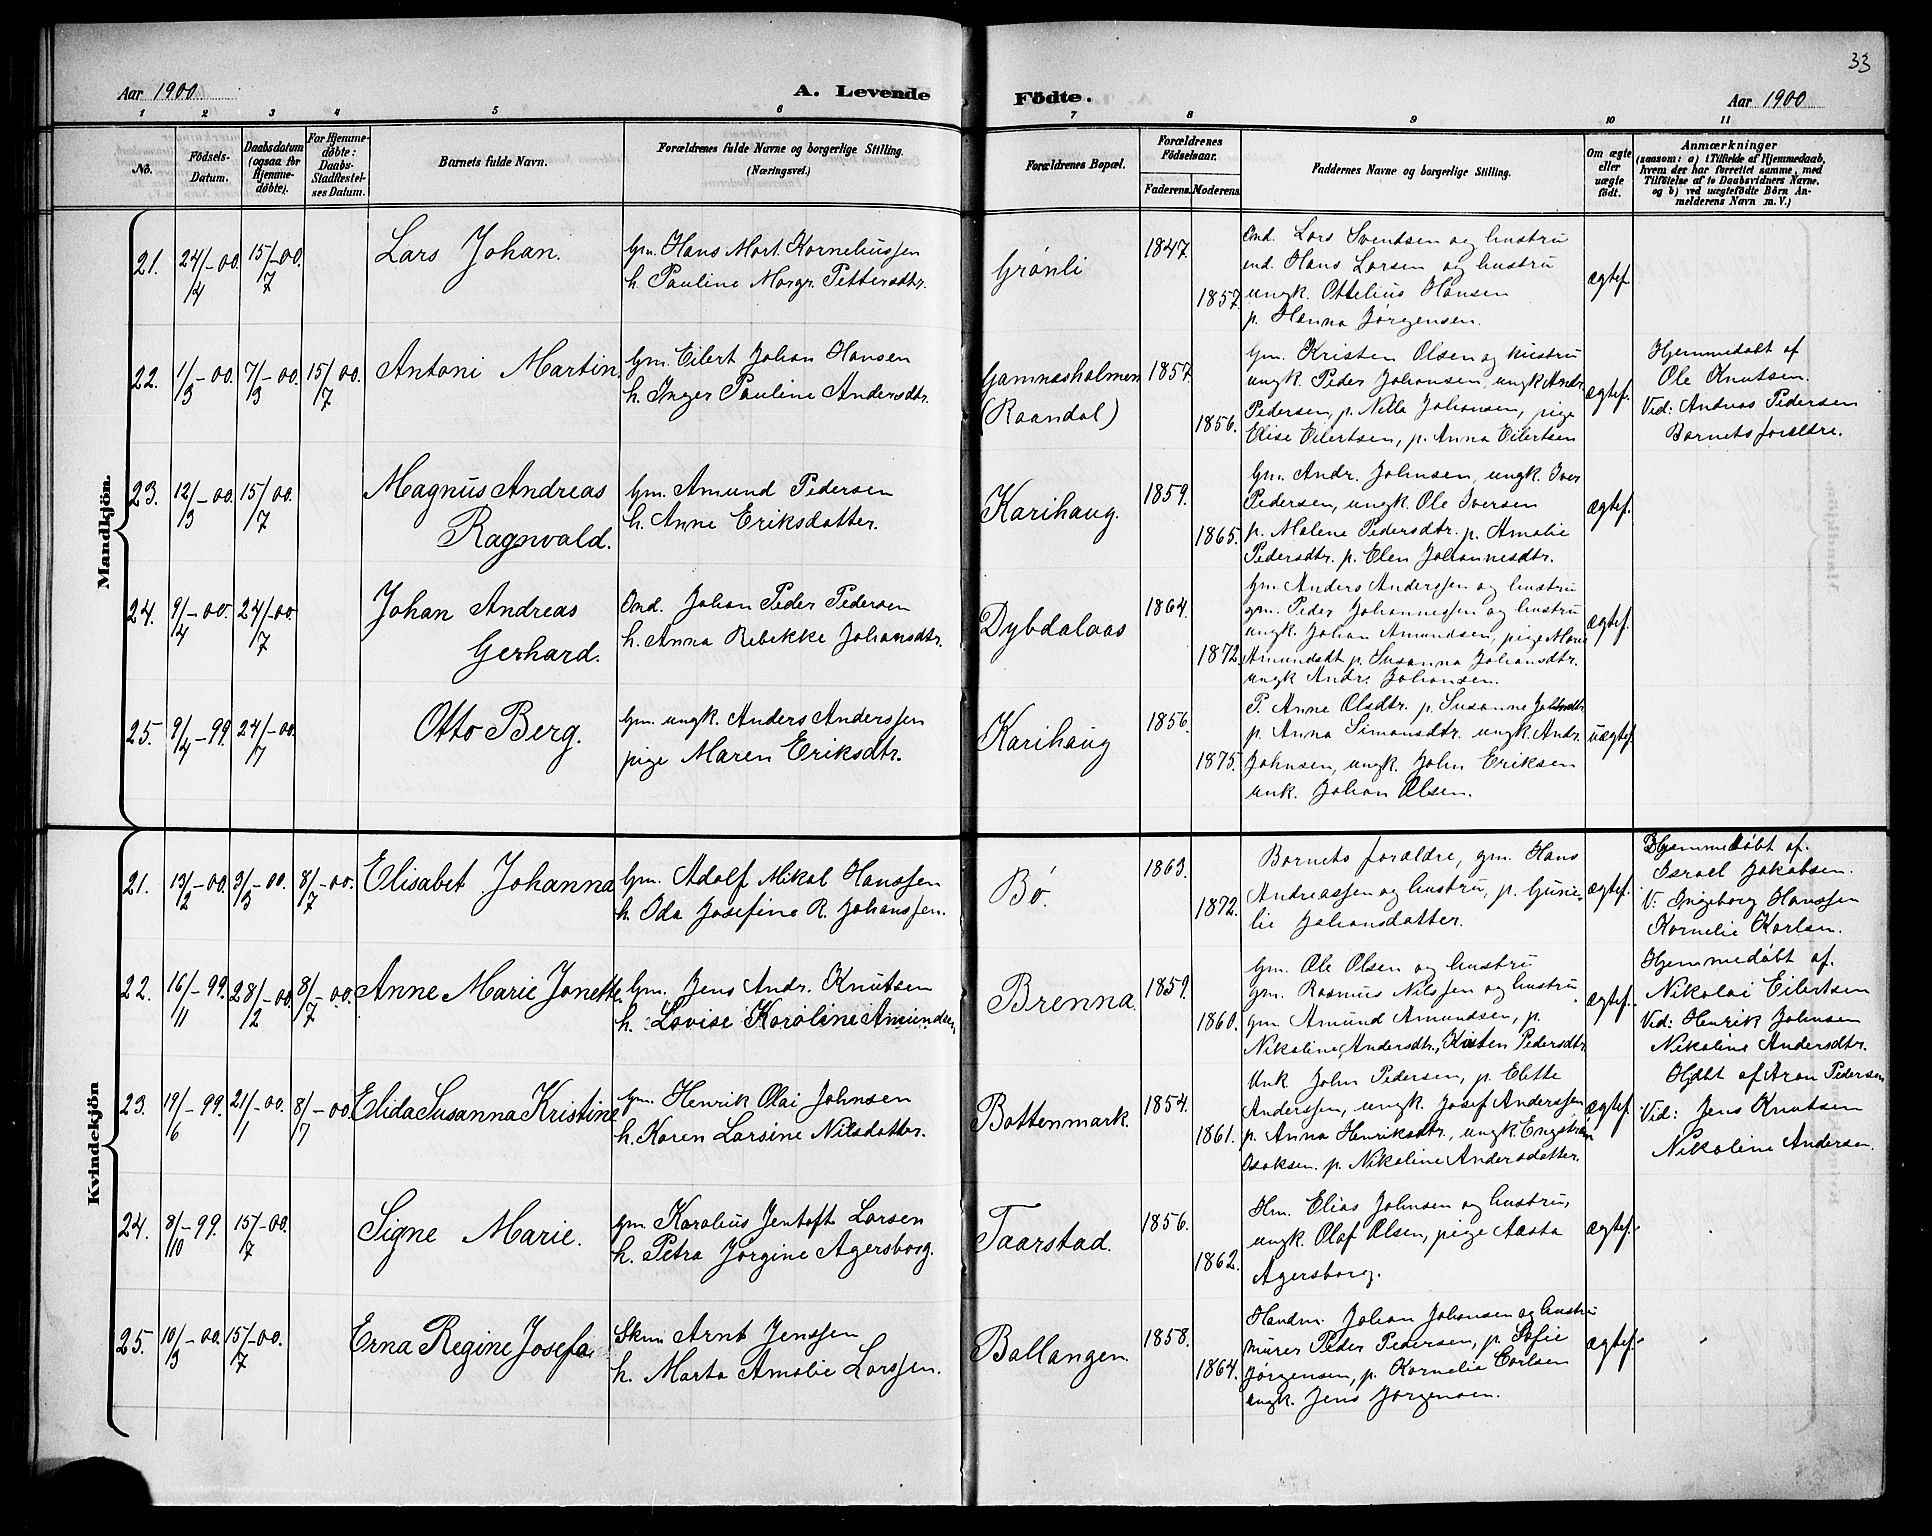 33
Aar 1900
A. Levende Födte.
Aar 1900
1 2 3 4 5 6 7 8 9 10 11
No.
Födsels-
Datum.
Daabsdatum
(ogsaa for
Hjemme-
døbte).
For Hjemme-
døbte:
Daabs-
Stadfæstel-
ses Datum.
Barnets fulde Navn.
Forældrenes fulde Navne og borgerlige Stilling.
(Næringsvei.)
Forældrenes Bopæl.
Forældrenes
Fødselsaar.
Faderens. Moderens.
Faddernes Navne og borgerlige Stilling.
Om ægte
eller
uægte
født.
Anmærkninger
(saasom: a) i Tilfælde af Hjemmedaab,
hvem der har forrettet samme, med
Tilföielse af to Daabsvidners Navne,
og b) ved uægtefödte Börn An-
melderens Navn m. V.)
Mandkjön.
21. 24/4-00. 15/7-00.
Lars Johan.
Gm. Hans Mort. Korneliussen
h. Pauline Margr. Pettersdtr.
Grønli
1847.
1857.
Ond. Lars Svendsen og hustru
ind. Hans Larsen og hustru
ungk. Ottelius Hansen
p. Hanna Jørgensen.
ægtef
22. 1/3-00. 7/3-00. 15/7-00.
Antoni Martin.
Gm. Eilert Johan Hansen
h. Inger Pauline Andersdtr.
Gamnesholmen
(Raandal)
1857.
1856.
Gm. Kristen Olsen og hustru
ungk. Peder Johansen, ungk Andr.
Pedersen, p. Nella Johansen, pige
Elise Eilertsen, p. Anna Eilertsen
ægtef.
Hjemmedøbt af
Ole Knutsen.
Ved: Andreas Pedersen
Barnets forældre.
23. 12/3-00. 15/7-00.
Magnus Andreas
Ragnvald.
Gm. Amund Pedersen
h. Anne Eriksdatter.
Karihaug.
1859.
1865.
Gm. Andr. Johnsen, ungk. Iver
Pedersen, ungk. Ole Iversen
p. Malene Pedersdtr. p. Amalie
Pedersdtr. p. Elen Johannesdtr.
ægtef.
24. 9/4-00. 24/7-00
Johan Andreas
Gerhard.
Ond. Johan Peder Pedersen
h. Anna Rebekke Johansdtr.
Dybdalaas
1864.
1872
Gm. Anders Anderssen og hustru
gm. Peder Johannessen og hustru
ungk. Johan Amundsen, pige
Amundsdt p. Susanna Johansdtr.
ungk Andr. Johansen.
ægtef.
25. 9/4-99. 24/7-00.
Otto Berg.
Gm. ungk. Anders Anderssen
pige Maren Eriksdtr.
Karihaug
1856.
1875.
P. Anne Olsdtr. p. Susanne
p. Anna Simonsdtr. ungk. Andr.
Johnsen, ungk. John Eriksen
unk. Johan Olsen.
uægtef.
Kvindekjön
21. 13/2-00. 3/3-00. 8/7-00.
Elisabet Johanna
Gm. Adolf Mikal Hanssen
h. Oda Josefine R. Johanssen.
Bø.
1863.
1872.
Barnets forældre, gm. Hans
Andreassen og hustru, p. Gune-
lie Johansdatter.
ægtef.
Hjemmedøbt af.
Israel Jakobsen.
V: Ingeborg Hanssen
Kornelie Karlsen.
22. 16/11-99. 28/12-00. 8/7-00.
Anne Marie Jonette.
Gm. Jens Andr. Knutsen
h. Lovise Karoline Amundsen
Brenna.
1859.
1860.
Gm. Ole Olsen og hustru
gm. Rasmus Nilssen og hustru
gm Amund Amundsen, p.
Nikoline Andersdtr., Kristen Pedersdtr
ægtef.
Hjemmedøbt af.
Nikolai Eilertsen
Ved: Henrik Johnsen
Nikoline Andersdtr.
23. 19/6-99. 21/1-00. 8/7-00.
Elida Susanna Kristine
Gm. Henrik Olai Johnsen
h. Karen Larsine Nilsdatter.
Bottenmark.
1854.
1861.
Unk John Pedersen, p. Elette
Anderssen, ungk. Josef Anderssen
p. Anna Henriksdtr., ungk. Engström
Isaksen. p. Nikoline Andersdatter.
ægtef.
Hdbt af Aron Pedersen
Ved: Jens Knutsen
Nikoline Andersen.
24. 8/10-99. 15/7-00.
Signe Marie.
gm Karolius Jentoft Larsen
h. Petra Jørgine Agersborg.
Taarstad.
1856.
1862.
Hm. Elias Johnsen og hustru,
ungk. Olaf Olsen, pige Aasta
Agersborg.
ægtef.
25. 10/3-00. 15/7-00.
Erna Regine Josefa
Skm Arnt Jenssen
h. Marta Amalie Larssen.
Ballangen.
1858.
1864.
Handm. Johan Johansen og hustru
murer Peder Pedersen, p. Sofie
Jørgensen, p. Kornelie Carlsen
ungk. Jens Jørgensen.
ægtef.